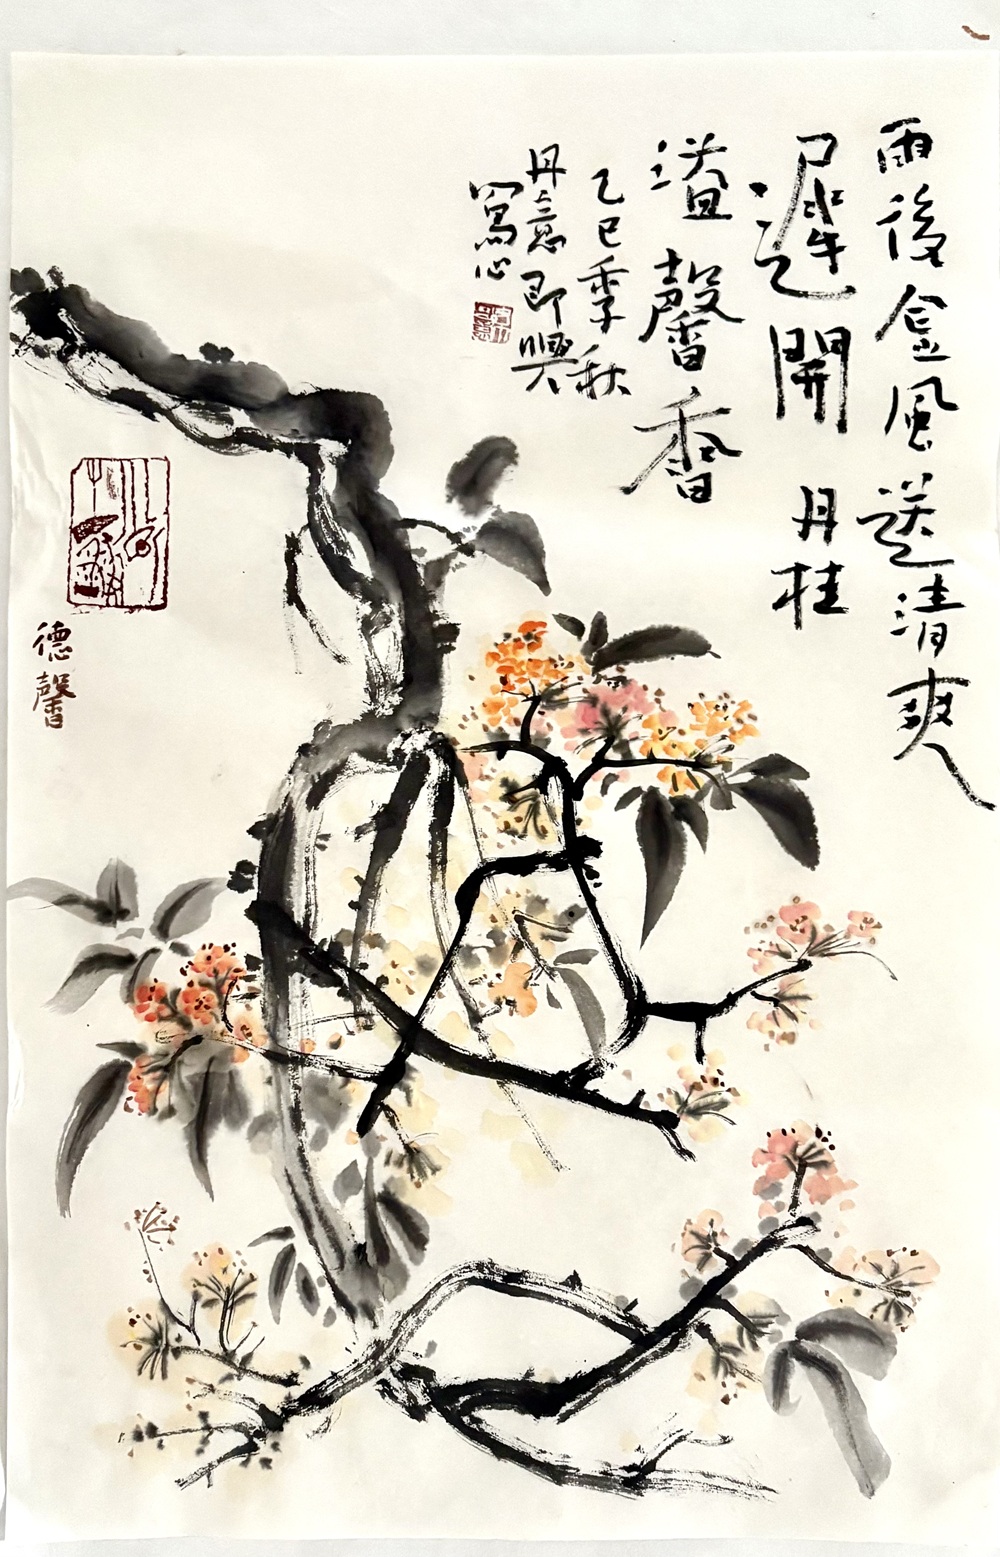 雨後金風送清爽
遲開丹桂
溢馨香
乙巳季秋
丹意即興
寫心
德馨